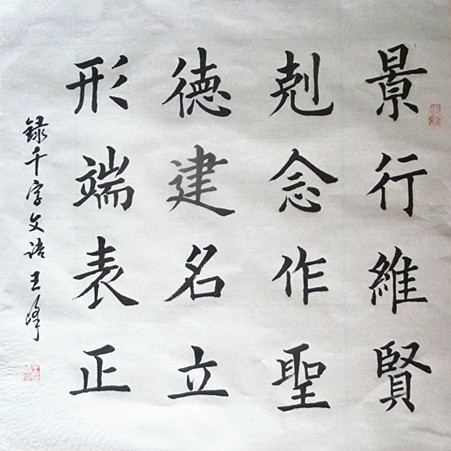 景行維賢
剋念作聖
德建名立
形端表正
錄千字文語 王峰